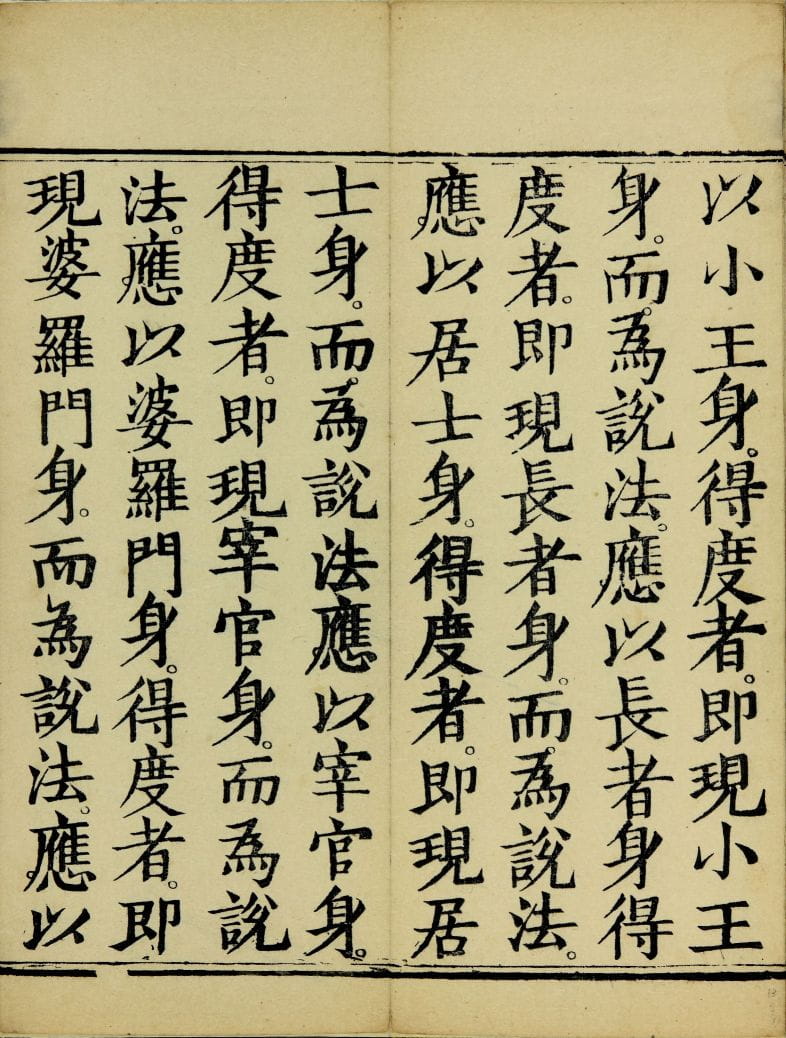 以小王身。得度者。即現小王
身。而。為說法。應以長者身得
度者。即現長者身。而。為說法。
應。以居士身。得度者。即現居
士身。而。為說法應以宰官身。
得度者。即現宰官身。而為說
法。應以婆羅門身。得度者。即
現婆羅門身。而為說法。應。以